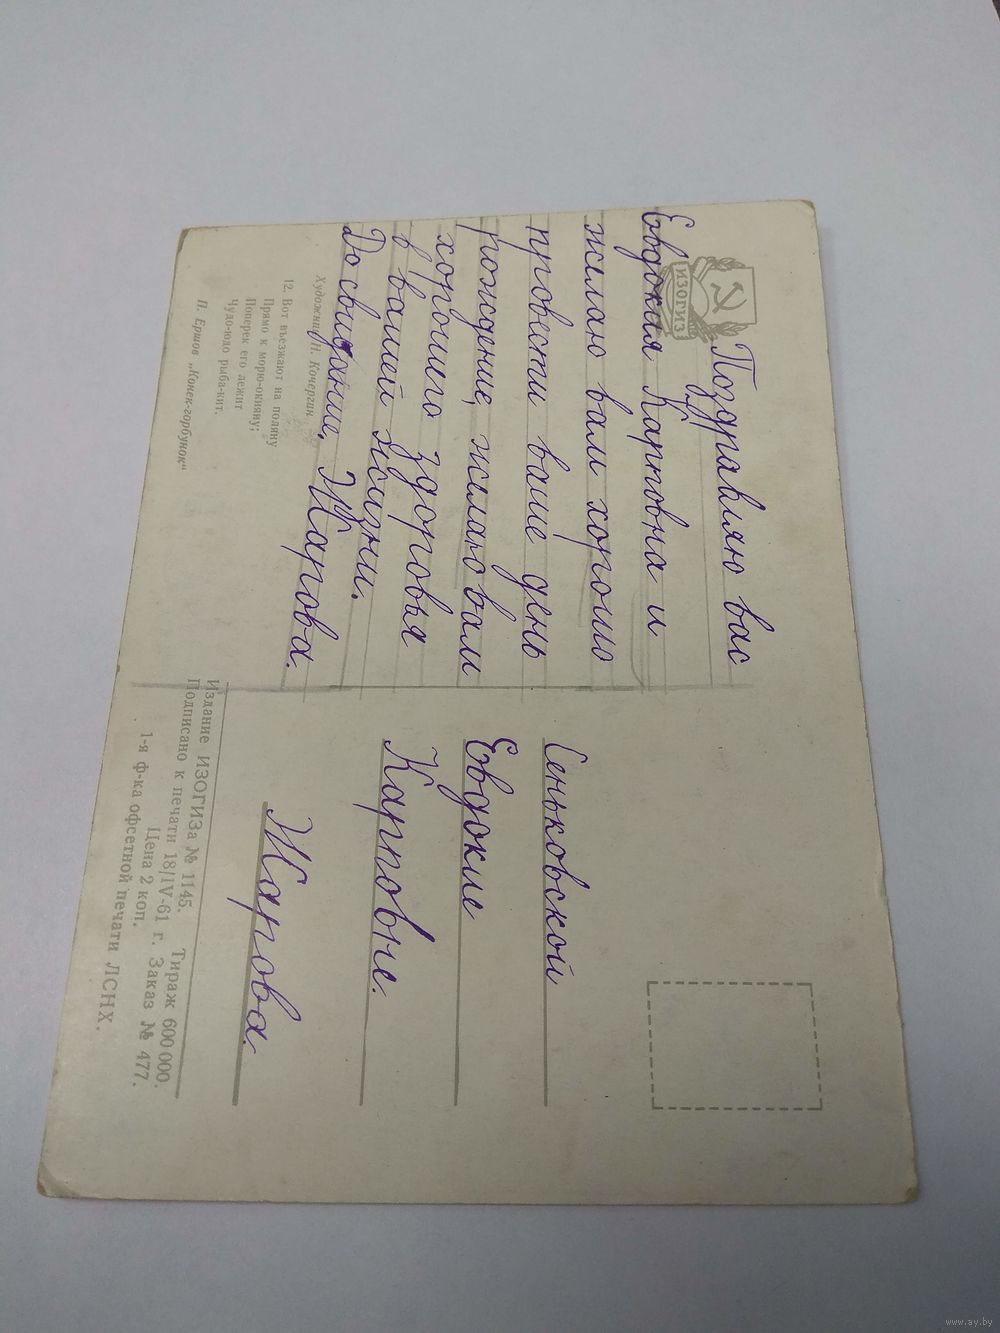 ИЗОГИЗ
Поздравляю вас
Евдокия Карповна и
желаю вам хорошо
провести ваше день
рождение, желаю вам
хорошего здоровья
в вашей жизни.
До свидание. Жарова.
Художник Н. Кочергин
12. Вот въезжают на поляну
Прямо к морю-окияну;
Поперек его лежит
Чудо-юдо рыба-кит.
П. Ершов „Конек-горбунок“
Сеньковской
Евдокие
Карповне.
Жарова.
Издание ИЗОГИЗа № 1145. Тираж 600 000.
Подписано к печати 18/IV-61 г. Заказ № 477.
Цена 2 коп.
1-я ф-ка офсетной печати ЛСНХ.
www.ay.by